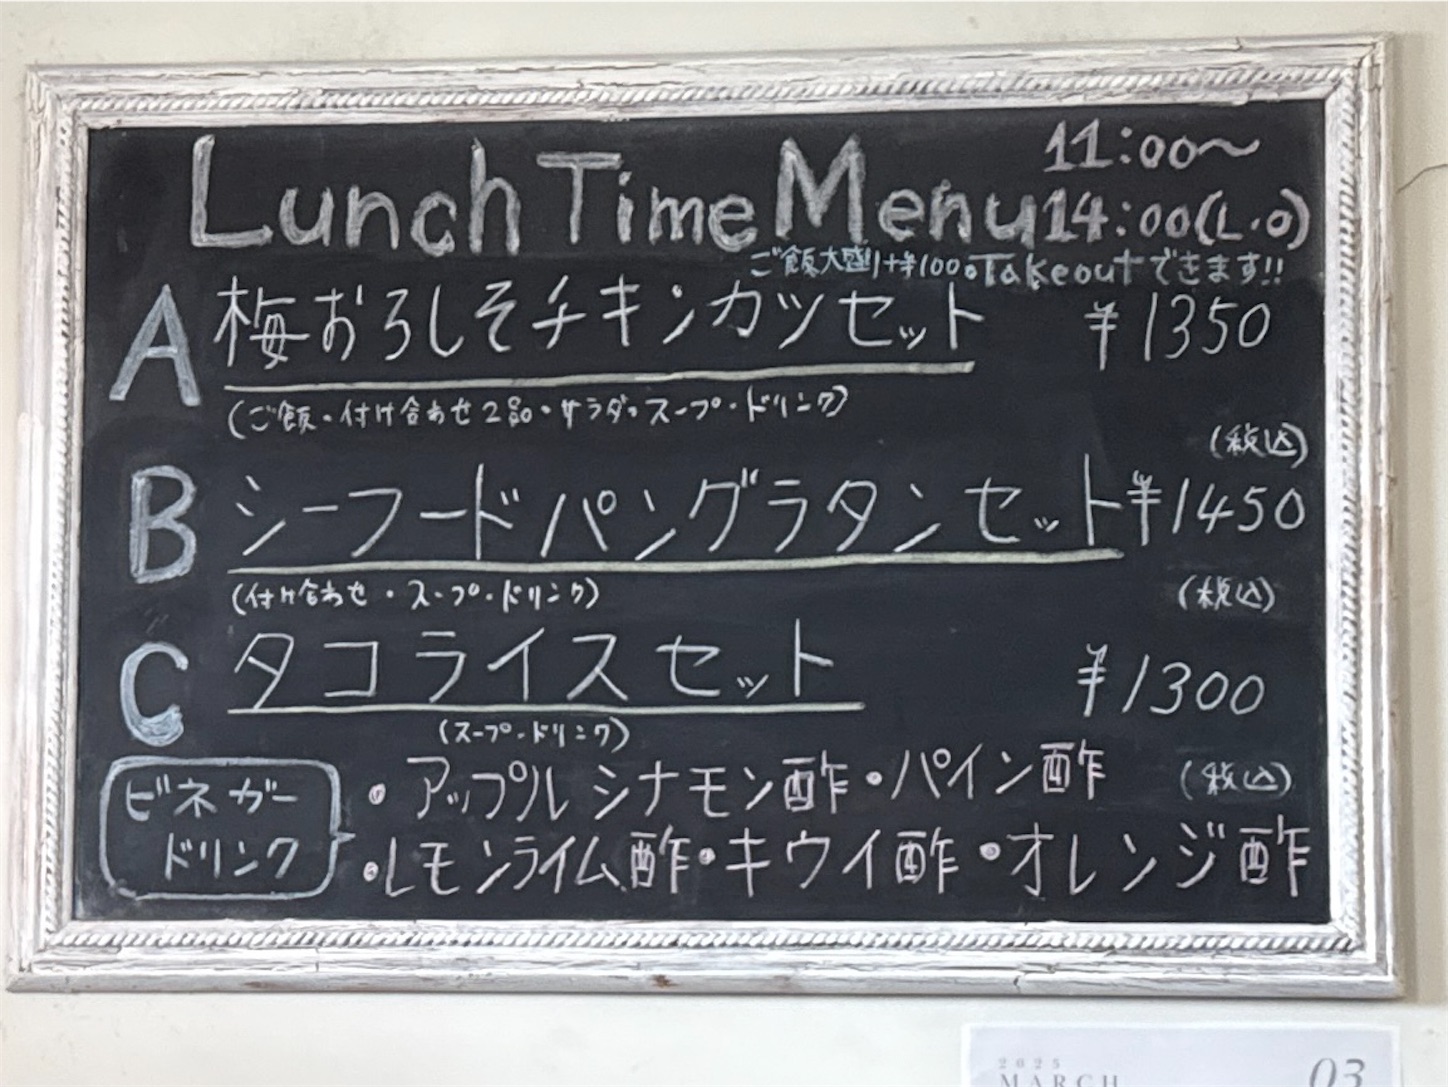 Lunch Time Menu 11:00〜
14:00(L.O)
ご飯大盛り+¥100。Takeoutできます!!
A 梅おろしそチキンカツセット ¥1350
(ご飯・付け合わせ2品・サラダ・スープ・ドリンク)
(税込)
B シーフードパングラタンセット ¥1450
(付け合わせ・スープ・ドリンク)
(税込)
C タコライスセット ¥1300
(スープ・ドリンク)
(税込)
ビネガー
ドリンク
・アップルシナモン酢・パイン酢
・レモンライム酢・キウイ酢・オレンジ酢
2025
MARCH 03